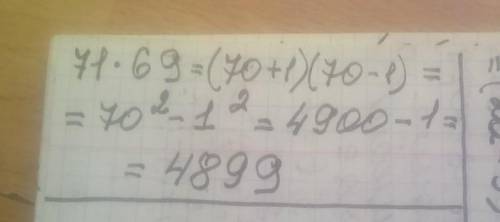 71·69=(70+1)(70-1)=
=70²-1²=4900-1=
=4899